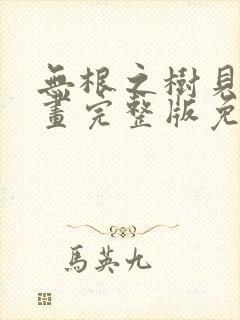 無根之樹見
畫完整版免
馬英九